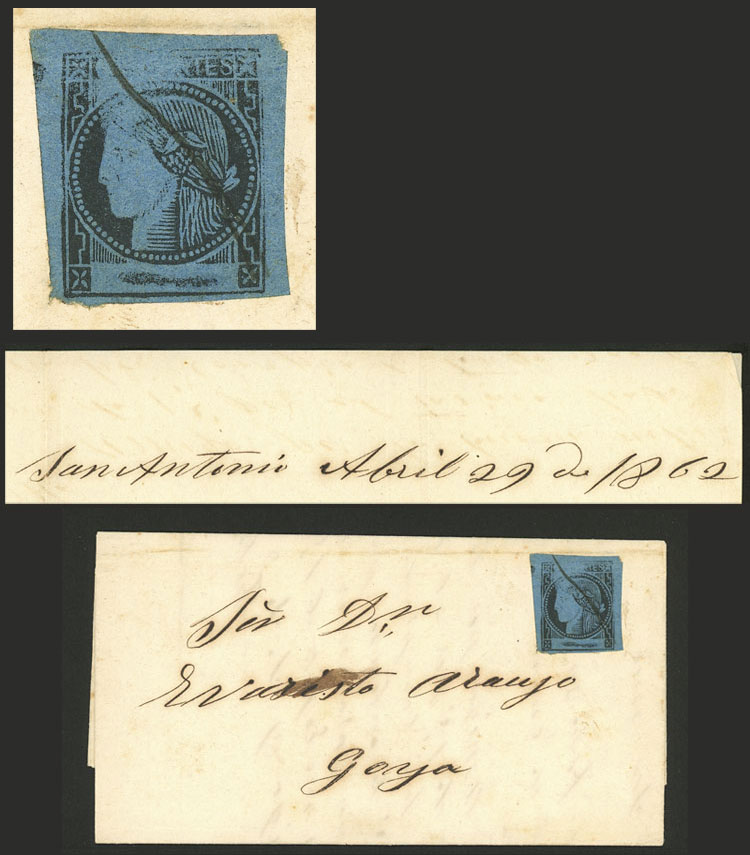 TES
San Antonio Abril 29 de 1862
Sōr Dn
Evaristo Araujo
Goya